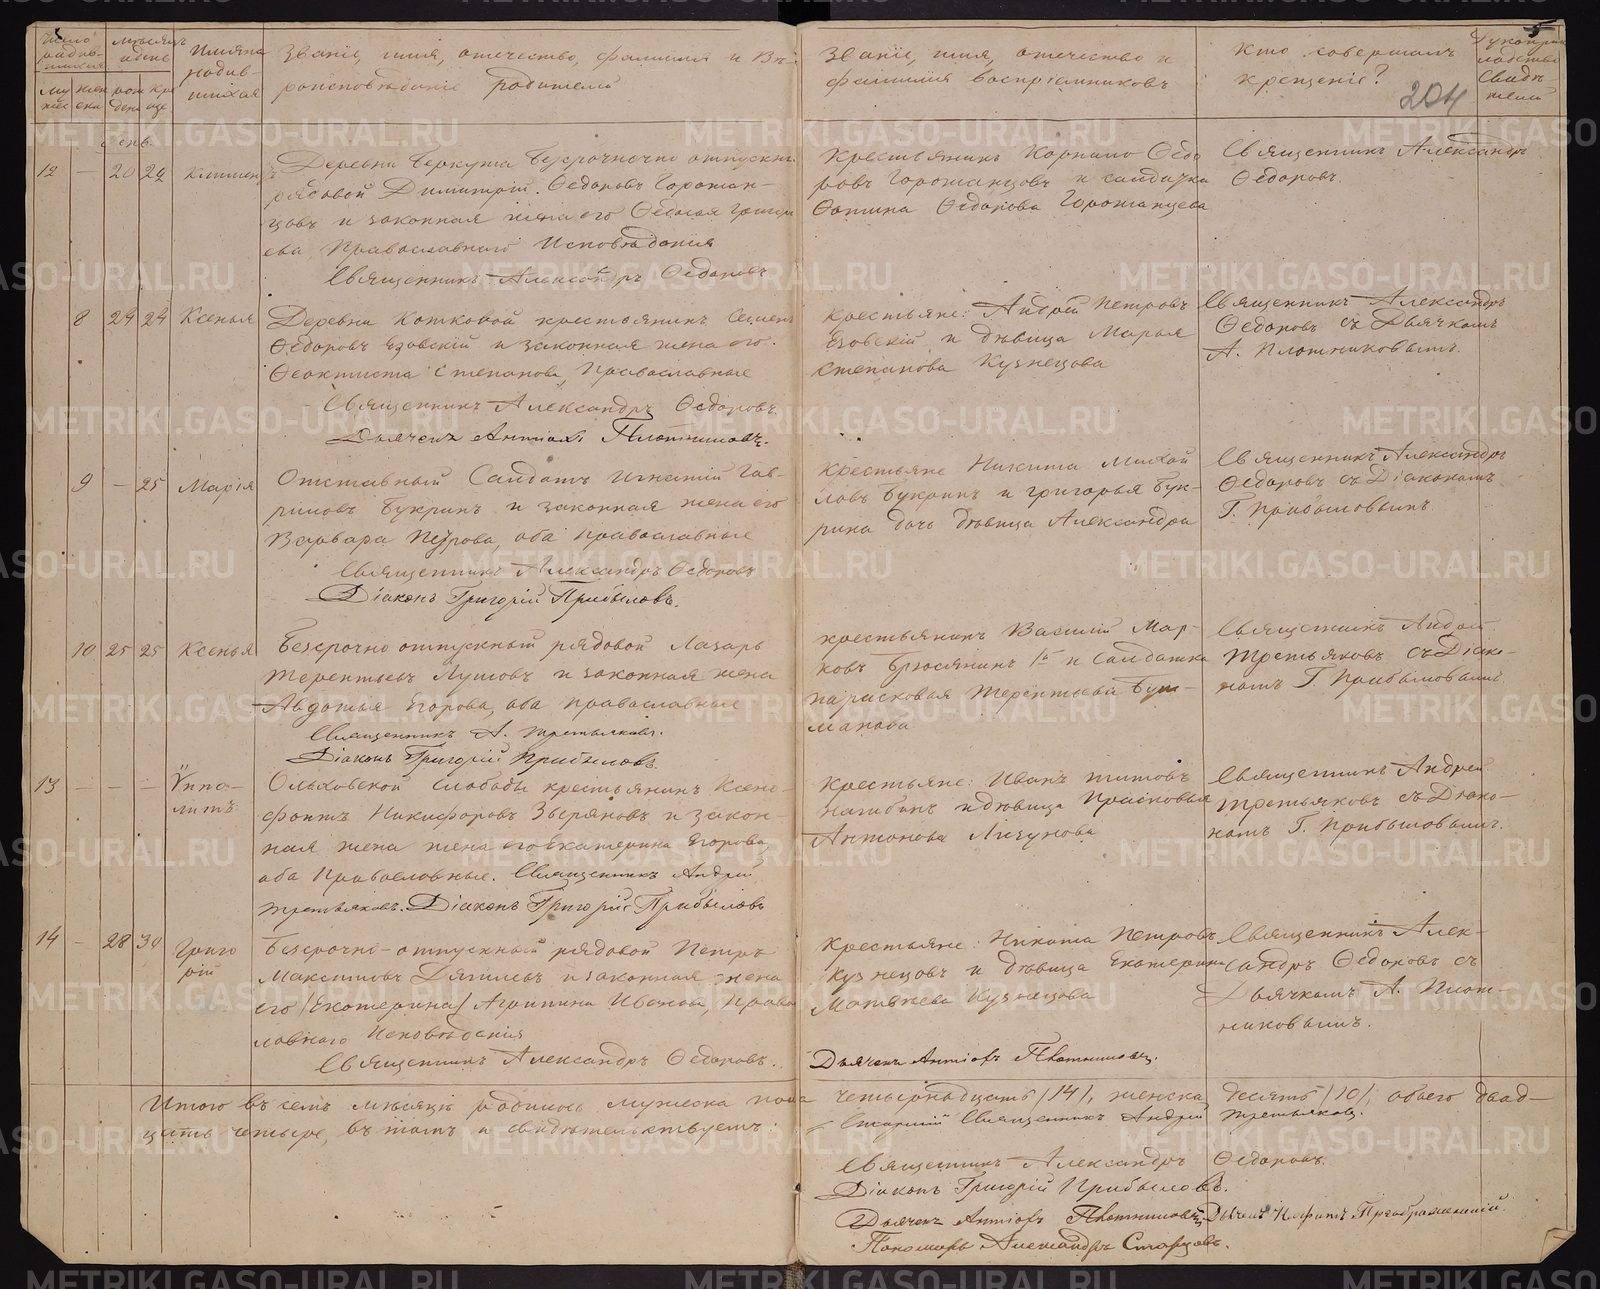 5
204
Число родив-шихся
Мѣсяцъ и день
Имяна родив-шихся
Званіе, имя, отечество, фамилія и Вѣ-
роисповѣданіе родителей
Званіе, имя, отечество и
фамилія воспріемниковъ
Кто совершалъ
крещеніе?
Рукопри
кладство
Свидѣ-
телей
12 — 20 24
Деревни Беркута Безсрочно отпускн.
рядовой Димитрій Ѳедоровъ Горожан-
цовъ и законная жена его Ѳедосья Григорь
ева, Православнаго Исповѣданія
Священникъ Александръ Ѳедоровъ
Крестьянинъ Корнило Ѳедо
ровъ Горожанцовъ и солдатка
Фотина Ѳедорова Горожанцева
Священникъ Александръ
Ѳедоровъ.
8 24 24 Ксенья
Деревни Кошковой крестьянинъ Семенъ
Ѳедоровъ Язовскій и законная жена его
Ѳеоктиста Степанова, Православные
Священникъ Александръ Ѳедоровъ
Дьячекъ Антіохъ Плотниковъ.
Крестьяне: Андрей Петровъ
Язовскій и дѣвица Марья
Степанова Кузнецова
Священникъ Александръ
Ѳедоровъ съ Дьячкомъ
А. Плотниковымъ.
9 — 25 Марія
Отставный Солдатъ Игнатій Гав-
риловъ Букринъ и законная жена его
Варвара Петрова, оба православные
Священникъ Александръ Ѳедоровъ
Діаконъ Григорій Прибыловъ.
Крестьяне Никита Михай
ловъ Букринъ и Григорья Бук-
рина дочь дѣвица Александра
Священникъ Александръ
Ѳедоровъ съ Діакономъ
Г. Прибыловымъ.
10 25 25 Ксенья
Безсрочно отпускный рядовой Лазарь
Терентьевъ Лушовъ и законная жена
Авдотья Егорова, оба православные
Священникъ А. Третьяковъ.
Діаконъ Григорій Прибыловъ.
Крестьянинъ Василій Мар-
ковъ Брюсянинъ 1й и Солдатка
Парасковья Терентьева Буш-
макова
Священникъ Андрей
Третьяковъ съ Діако-
номъ Г. Прибыловымъ.
13 — — — Ѵппо-
литъ
Ольховской Слободы крестьянинъ Ксено-
фонтъ Никифоровъ Звѣряковъ и закон-
ная жена жена его Екатерина Егорова,
оба Православные. Священникъ Андрей
Третьяковъ. Діаконъ Григорій Прибыловъ
Крестьяне: Иванъ Титовъ
Нагибинъ и дѣвица Прасковья
Антонова Лизунова
Священникъ Андрей
Третьяковъ съ Діако-
номъ Г. Прибыловымъ.
14 — 28 30 Григо
рій
Безсрочно-отпускный рядовой Петръ
Максимовъ Дягилевъ и законная жена
его /Екатерина/ Агрипина Иванова, Правос
лавнаго Исповѣданія
Священникъ Александръ Ѳедоровъ.
Крестьяне: Никита Петровъ
Кузнецовъ и дѣвица Екатерина
Матвѣева Кузнецова
Дьячекъ Антіохъ Плотниковъ.
Священникъ Алек-
сандръ Ѳедоровъ съ
Дьячкомъ А. Плот-
никовымъ.
Итого въ семъ мѣсяцѣ родилось мужеска пола четырнадцать /14/, женска десять /10/, обоего двад-
цать четыре, въ томъ и свидѣтельствуемъ:
Старшій Священникъ Андрей Третьяковъ.
Священникъ Александръ Ѳедоровъ.
Діаконъ Григорій Прибыловъ.
Дьячекъ Антіохъ Плотниковъ, Дьячекъ Преображенскій.
Пономарь Александръ Старцовъ.
METRIKI.GASO-URAL.RU